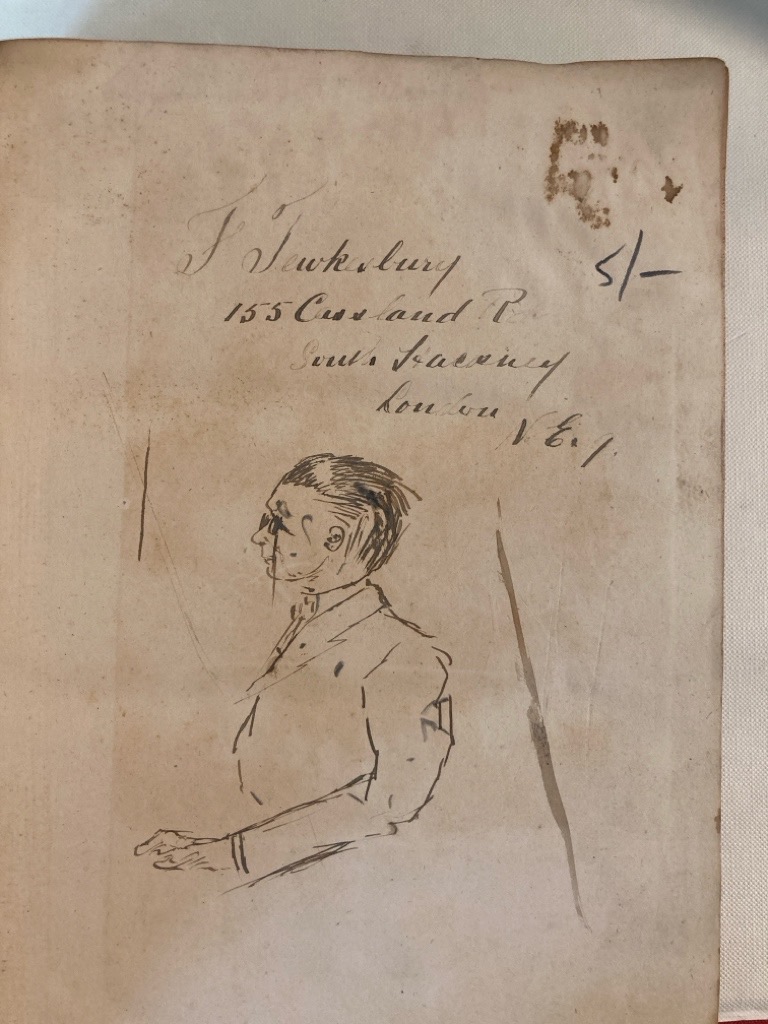 F Tewkesbury
5/-
155 Cassland R
South Hackney
London
N.E.9.